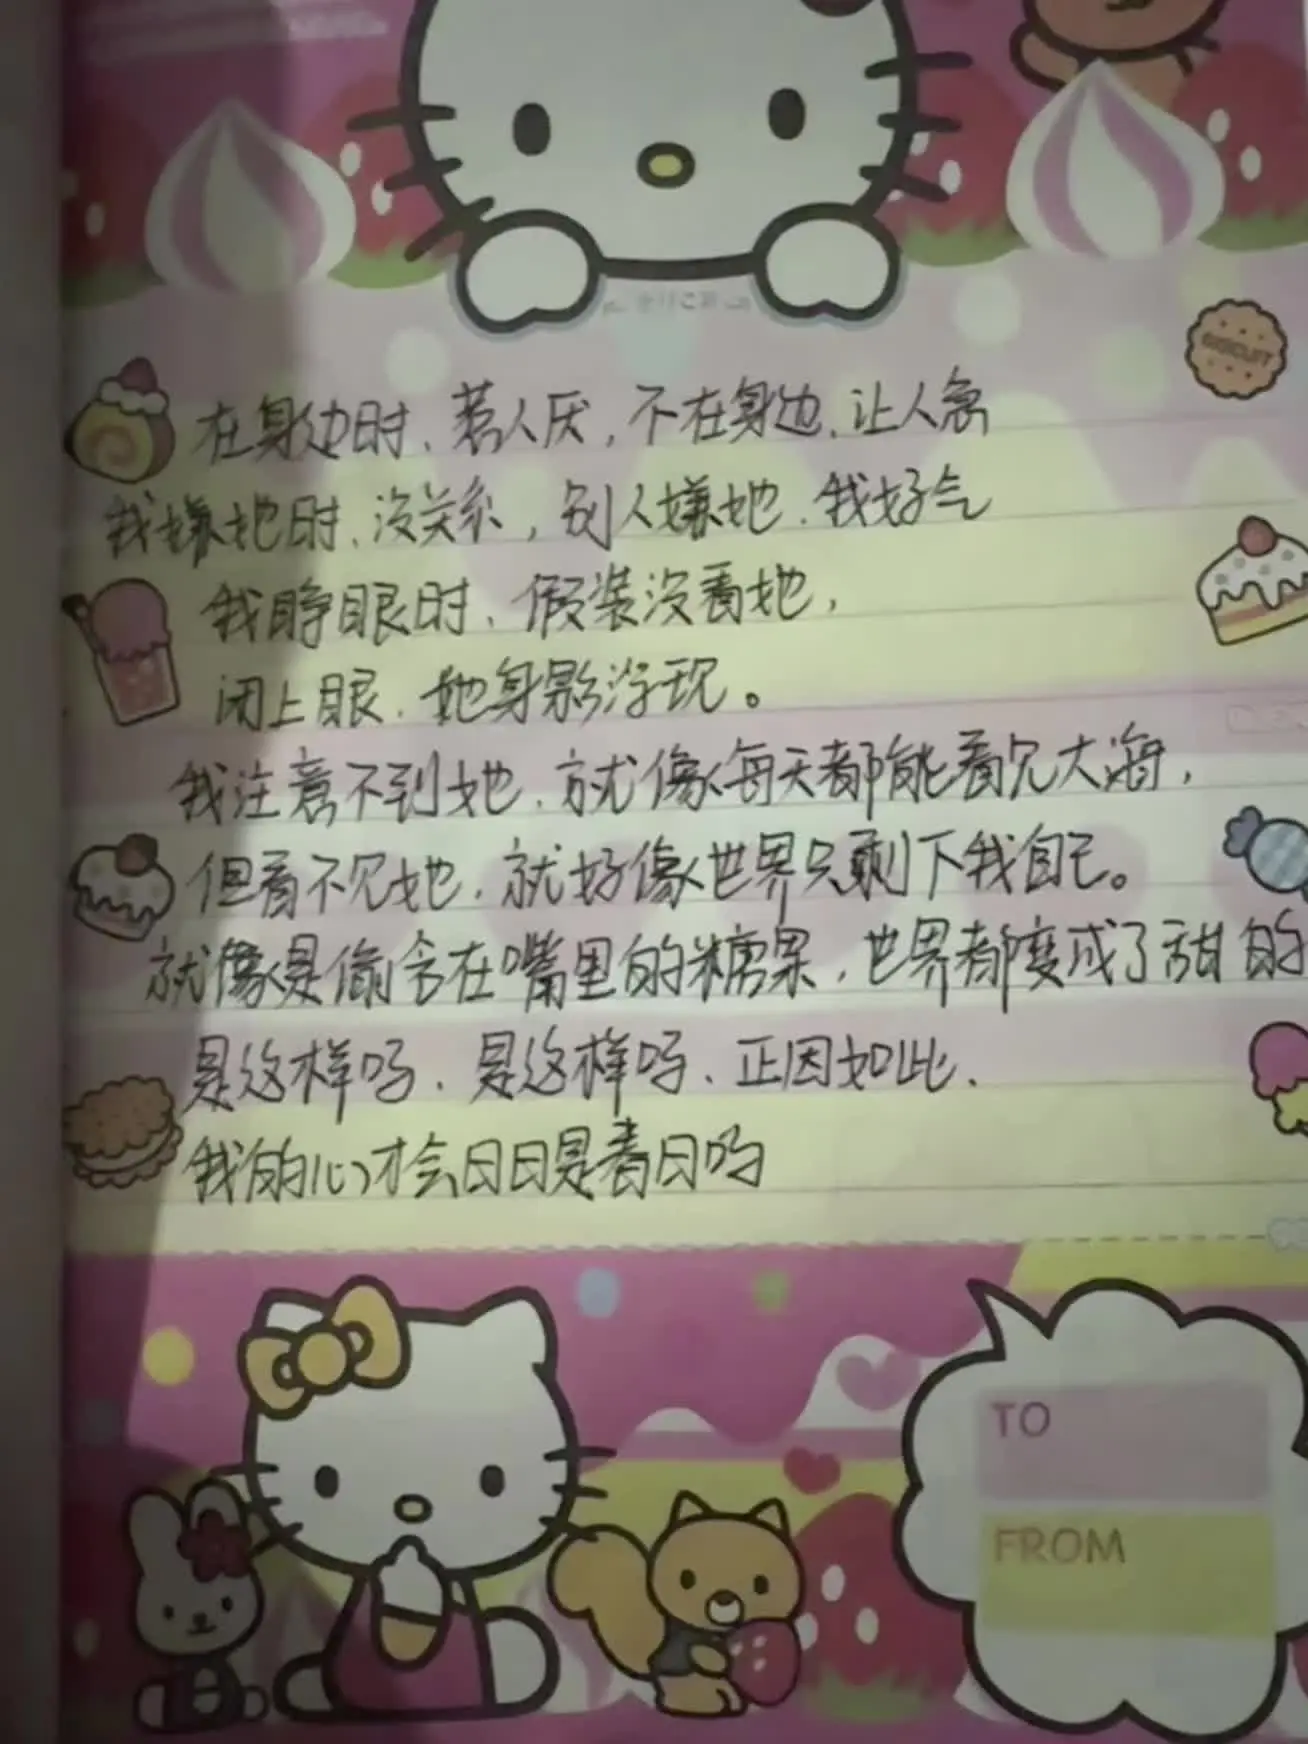 BISCUIT
在身边时、惹人厌，不在身边、让人急
我嫌她时、没关系，别人嫌她、我好气
我睁眼时、假装没看她，
闭上眼、她身影浮现。
我注意不到她、就像每天都能看见大海，
但看不见她、就好像世界只剩下我自己。
就像是偷含在嘴里的糖果、世界都变成了甜的
是这样吗、是这样吗、正因如此、
我的心才会日日是春日吗
TO
FROM